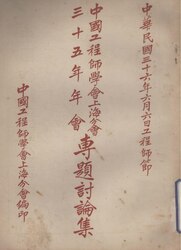 中華民國三十六年六月六日工程師節
中國工程師學會上海分會
三十五年年會專題討論集
中國工程師學會上海分會編印